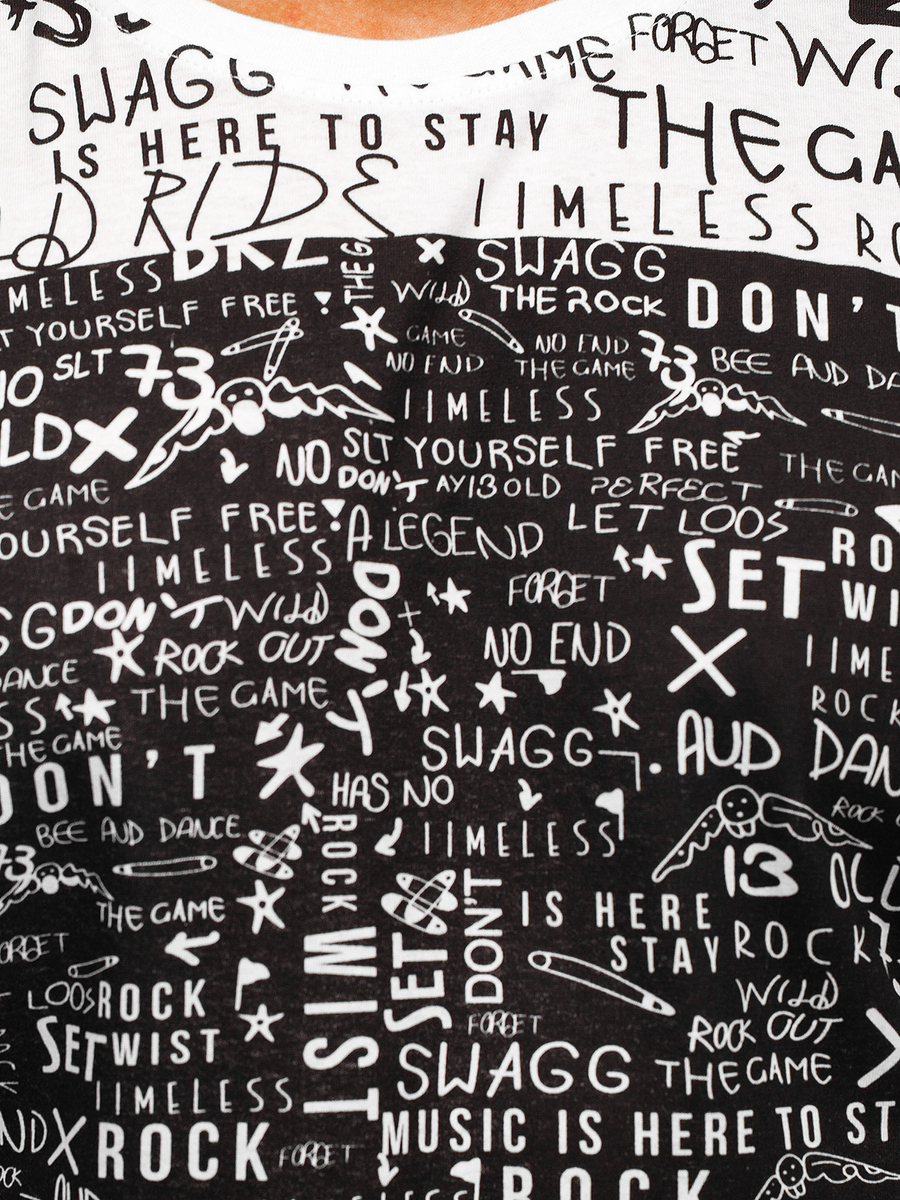 FORGET
SWAGG GAME
IS HERE TO STAY THE GA
D RIDE IIMELESS RO
MELESS THE G SWAGG
WILD THE ROCK DON'T
T YOURSELF FREE
GAME NO END 73 BEE AUD DA
NO SLT 73 NO END THE GAME
LD IIMELESS
NO SLT YOURSELF FREE THE GAM
E GAME DON'T AY13OLD PERFECT
OURSELF FREE A LEGEND LET LOOS
IIMELESS SET RO
FORGET WI
G DON'T WILD DON'T
ROCK OUT NO END IIME
DANCE ROCK
SS THE GAME
THE GAME SWAGG AUD DAN
DON'T HAS NO
BEE AUD DANCE ROCK IIMELESS ROCK
73 13
THE GAME IS HERE
ORGET WIST SET DON'T STAY ROCK
LOOS ROCK WILD
FORGET ROCK OUT
SET WIST SWAGG THE GAME
IIMELESS
ND X ROCK FORGET MUSIC IS HERE TO ST
AUD ROCK